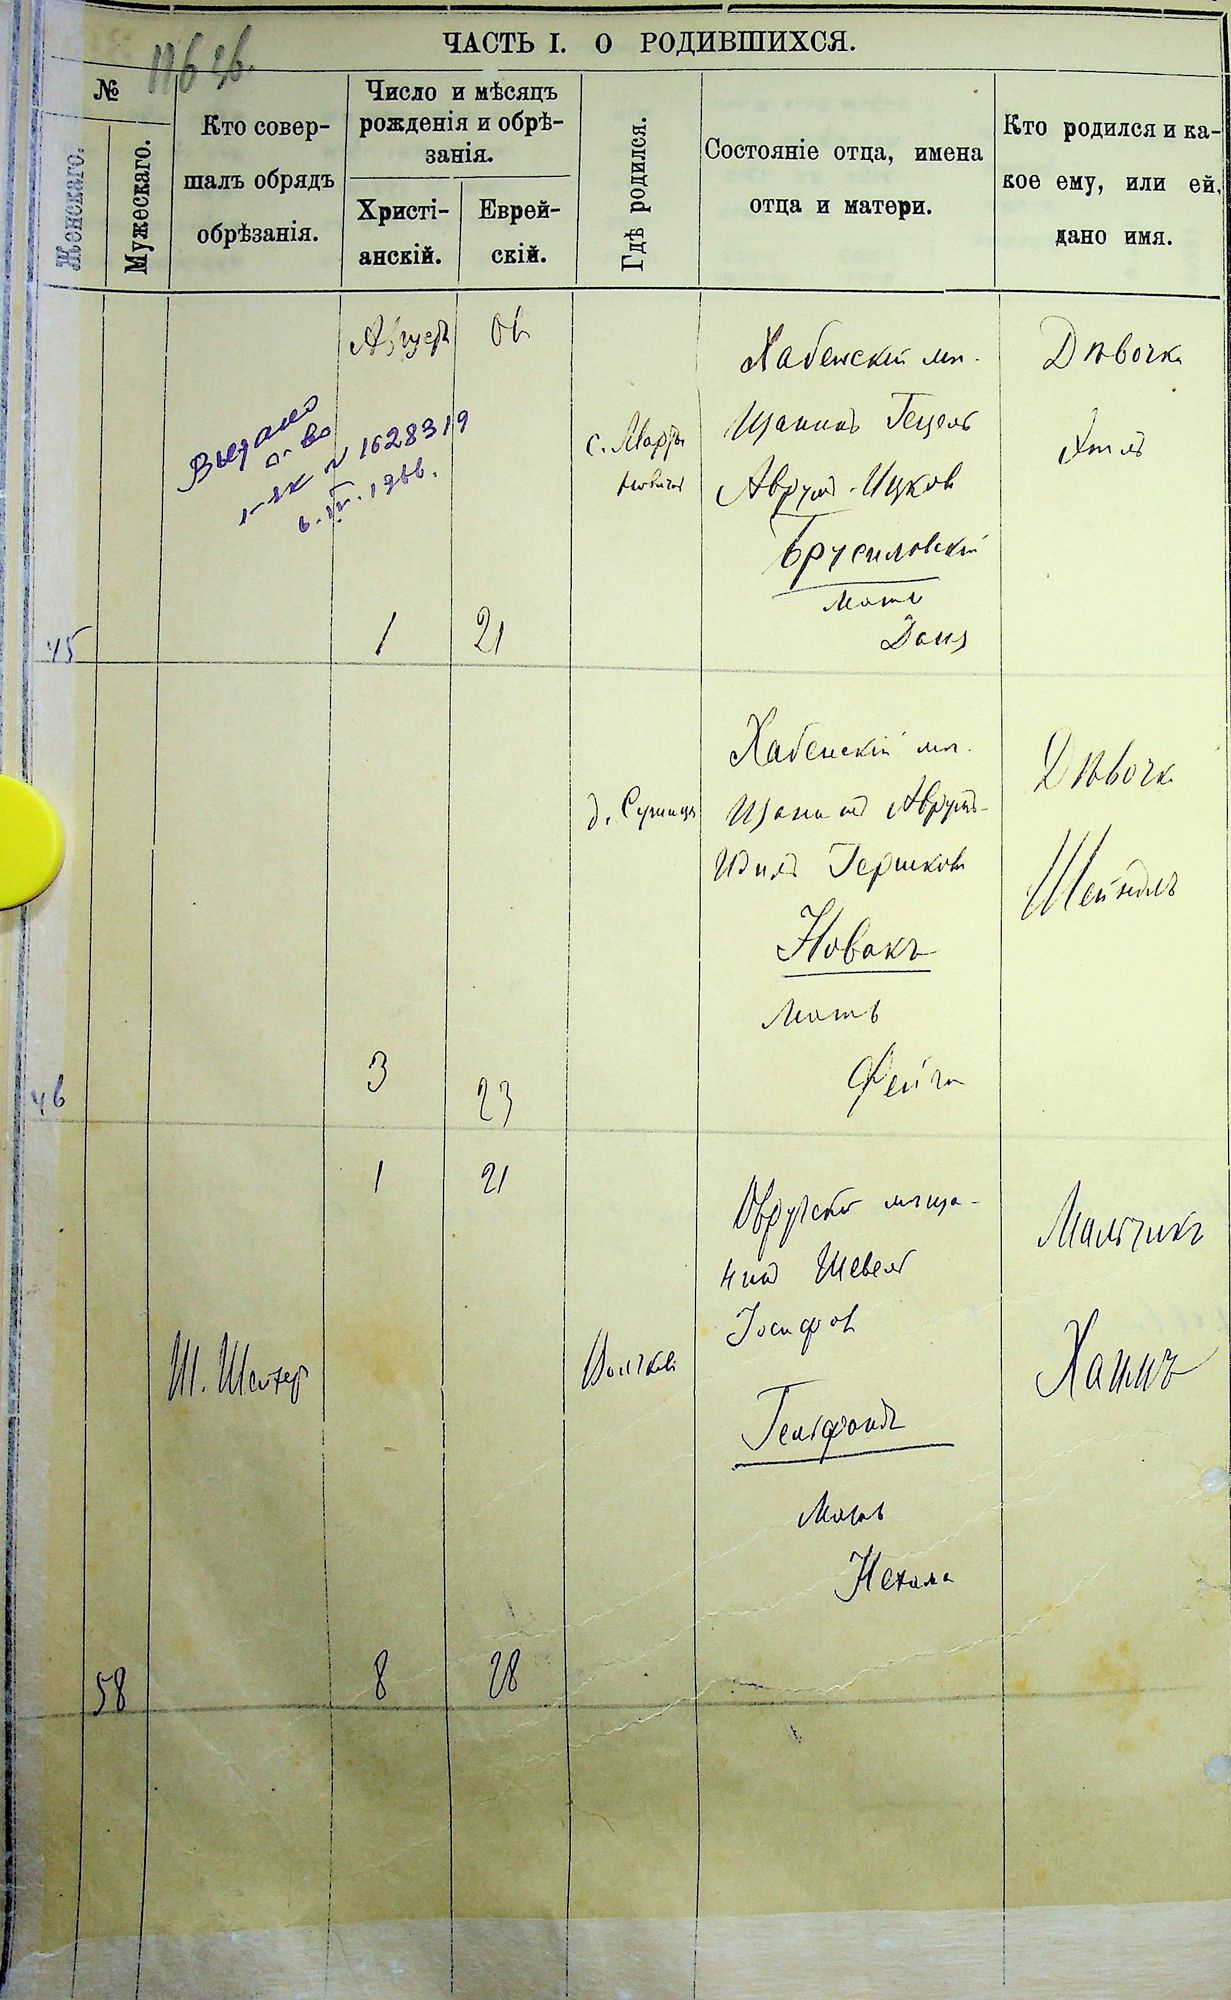 116 зв.
ЧАСТЬ I. О РОДИВШИХСЯ.
№
Женскаго.
Мужескаго.
Кто совер-
шалъ обрядъ
обрѣзанія.
Число и мѣсяцъ
рожденія и обрѣ-
занія.
Христі-
анскій.
Еврей-
скій.
Гдѣ родился.
Состояніе отца, имена
отца и матери.
Кто родился и ка-
кое ему, или ей,
дано имя.
45
Выдано
с-во
N 1628319
Августъ
1
Овъ
21
с. Марты
новичи
Хабенскій мѣ-
щанинъ Гецель
Аврумъ-Ицков
Брусиловскій
мать
Дѣвочка
46
3
23
Хабенскій мѣ-
щанинъ Аврумъ-
Гершков
Новакъ
Мать
Фейга
Дѣвочка
Шейндль
58
Ш. Шехтер
1
8
21
28
Овручскій мѣща-
нинъ Шевель
Іосифов
Гельфандъ
Мать
Нехама
Мальчикъ
Хаимъ